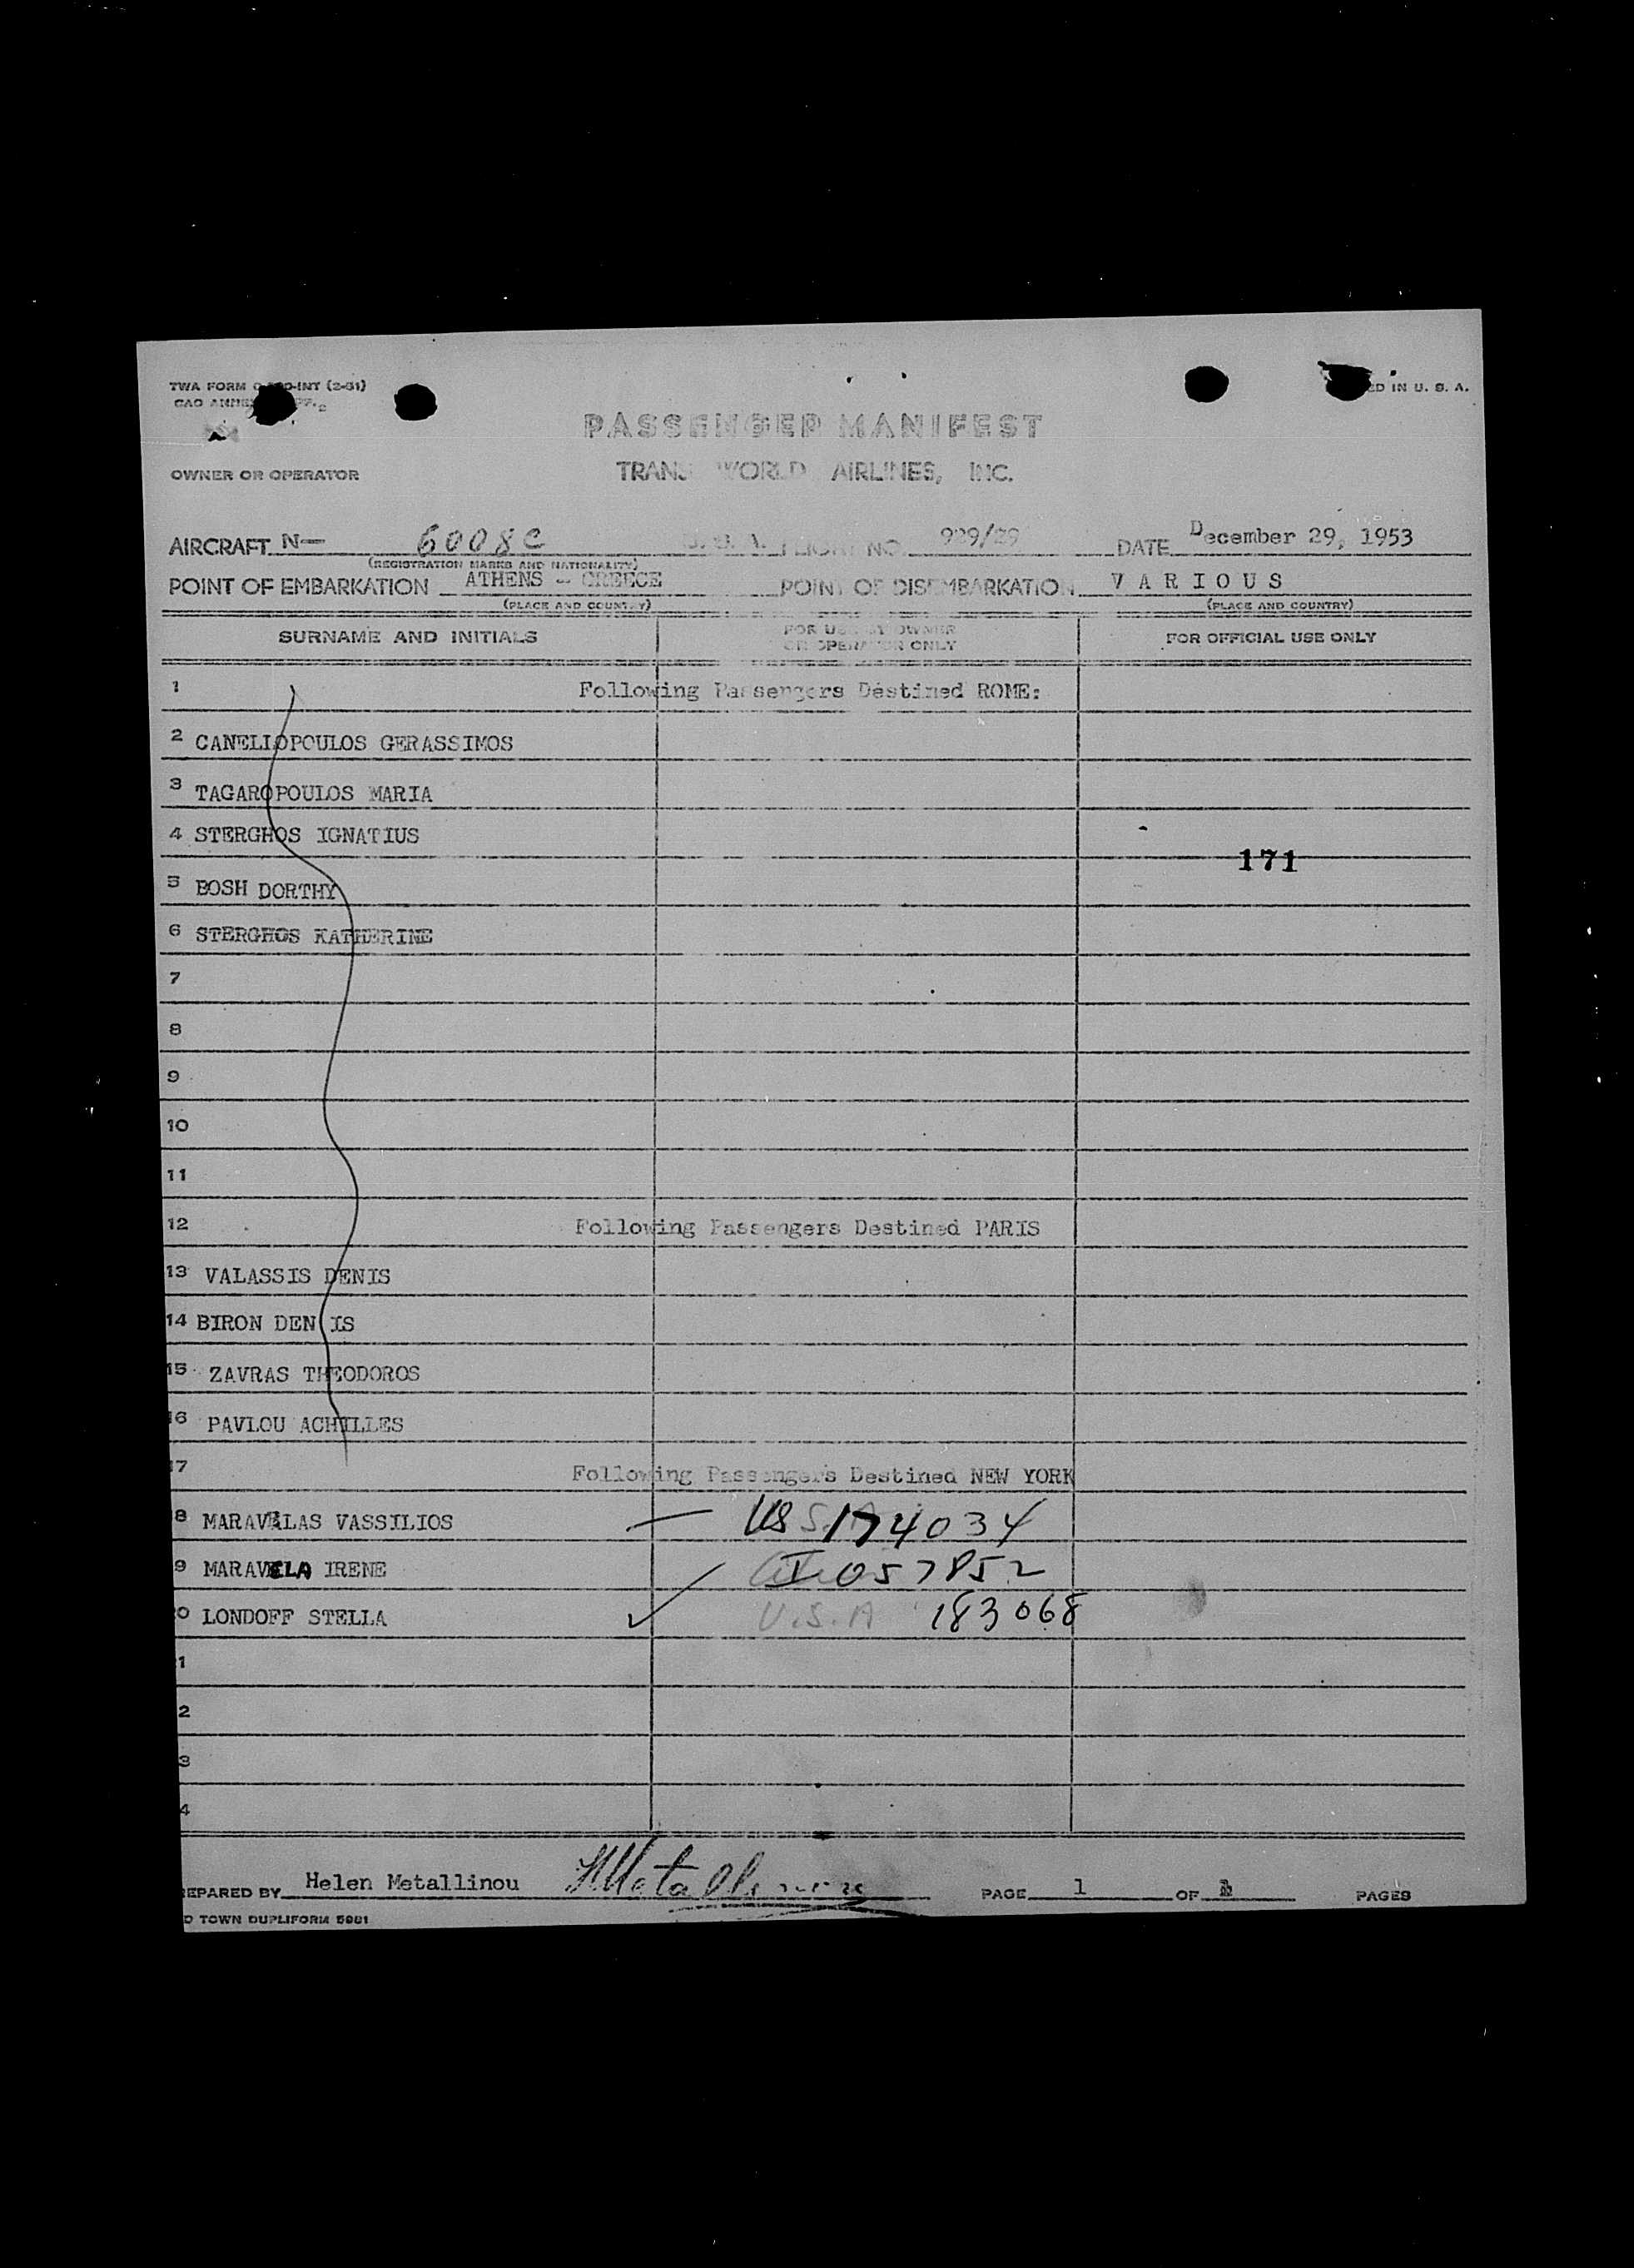 TWA FORM INT (2-51)
ED IN U. S. A.
PASSENGER MANIFEST
OWNER OR OPERATOR TRANS WORLD AIRLINES, INC.
AIRCRAFT N— 6008C U. S. A. FLIGHT NO. 929/29 DATE December 29, 1953
(REGISTRATION MARKS AND NATIONALITY)
POINT OF EMBARKATION ATHENS - GREECE POINT OF DISEMBARKATION VARIOUS
(PLACE AND COUNTRY) (PLACE AND COUNTRY)
SURNAME AND INITIALS FOR USE BY OWNER OR OPERATOR ONLY FOR OFFICIAL USE ONLY
1 Following Passengers Destined ROME:
2 CANELLOPOULOS GERASSIMOS
3 TAGAROPOULOS MARIA
4 STERGHOS IGNATIUS
171
5 BOSH DORTHY
6 STERGHOS KATHERINE
7
8
9
10
11
12 Following Passengers Destined PARIS
13 VALASSIS DENIS
14 BIRON DENIS
15 ZAVRAS THEODOROS
16 PAVLOU ACHILLES
17 Following Passengers Destined NEW YORK
8 MARAVELAS VASSILIOS US 174034
9 MARAVELA IRENE I 057852
0 LONDOFF STELLA U.S.A 183068
1
2
3
4
EPARED BY Helen Metallinou HMetallinou PAGE 1 OF 1 PAGES
D TOWN DUPLIFORM 5981